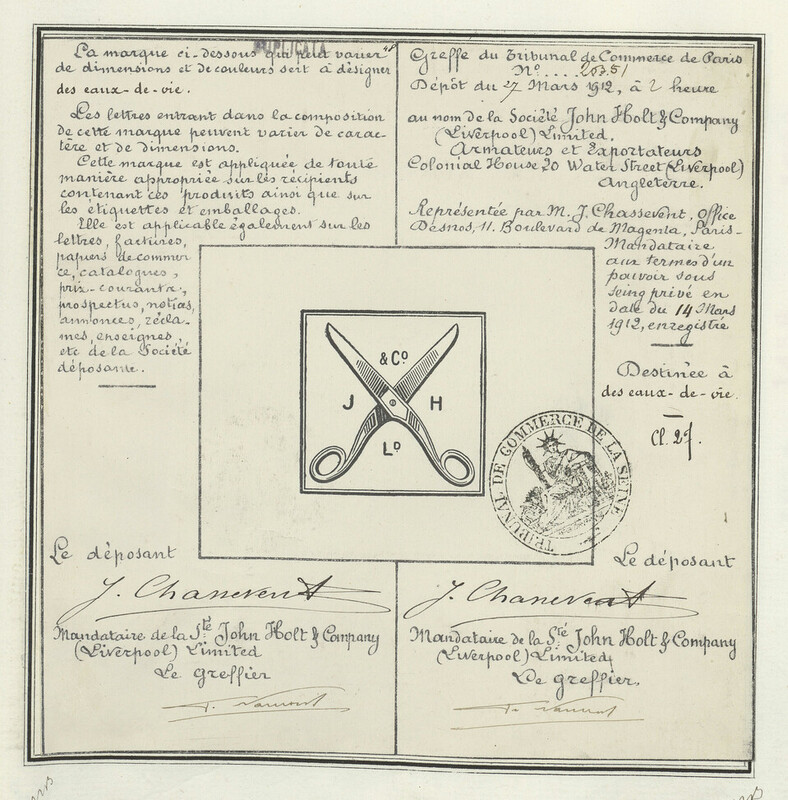 DUPLICATA
La marque ci-dessous qui peut varier
de dimensions et de couleurs sert à désigner
des eaux-de-vie.
Les lettres entrant dans la composition
de cette marque peuvent varier de carac-
tère et de dimensions.
Cette marque est appliquée de toute
manière appropriée sur les récipients
contenant ces produits ainsi que sur
les étiquettes et emballages.
Elle est applicable également sur les
lettres, factures,
papiers de commer-
ce, catalogues,
prix-courants,
prospectus, notices,
annonces, récla-
mes, enseignes,
etc de la Société
déposante.
Greffe du Tribunal de Commerce de Paris
Nº....
Dépôt du 27 Mars 1912, à 2 heure
au nom de la Société John Holt & Company
(Liverpool) Limited.
Armateurs et Exportateurs
Colonial House 20 Water Street (Liverpool)
Angleterre.
Représentée par M. J. Chassevent, Office
Desnos, 11, Boulevard de Magenta, Paris-
Mandataire
aux termes d'un
pouvoir sous
seing privé en
date du 14 Mars
1912, enregistré
Destinée à
des eaux-de-vie.
Cl. 27.
& Cº
J H
Lᴰ
TRIBUNAL DE COMMERCE DE LA SEINE
Le déposant
J. Chassevent
Mandataire de la Sté John Holt & Company
(Liverpool) Limited
Le greffier
Le déposant
J. Chassevent
Mandataire de la Sté John Holt & Company
(Liverpool) Limited
Le greffier.